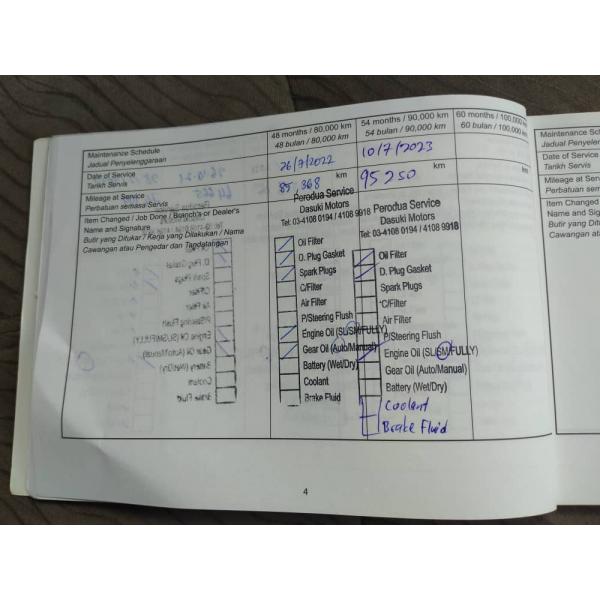 Maintenance Schedule
Jadual Penyelenggaraan
48 months / 80,000 km
48 bulan / 80,000 km
54 months / 90,000 km
54 bulan / 90,000 km
60 months / 100,000 km
60 bulan / 100,000 km
Date of Service
Tarikh Servis
26/7/2022
10/7/2023
Mileage at Service
Perbatuan semasa Servis
85,368 km
95250 km
km
Item Changed / Job Done / Branch's or Dealer's
Name and Signature
Butir yang Ditukar / Kerja yang Dilakukan / Nama
Cawangan atau Pengedar dan Tandatangan
Perodua Service
Dasuki Motors
Tel: 03-4108 0194 / 4108 9918
Oil Filter
O. Plug Gasket
Spark Plugs
C/Filter
Air Filter
P/Steering Flush
Engine Oil (SL/SM/FULLY)
Gear Oil (Auto/Manual)
Battery (Wet/Dry)
Coolant
Brake Fluid
Perodua Service
Dasuki Motors
Tel: 03-4108 0194 / 4108 9918
Oil Filter
D. Plug Gasket
Spark Plugs
C/Filter
Air Filter
P/Steering Flush
Engine Oil (SL/SM/FULLY)
Gear Oil (Auto/Manual)
Battery (Wet/Dry)
Coolant
Brake Fluid
4
Maintenance Sc
Jadual Penyelen
Date of Service
Tarikh Servis
Mileage at Serv
Perbatuan sema
Item Changed
Name and Sign
Butir yang Ditu
Cawangan ata